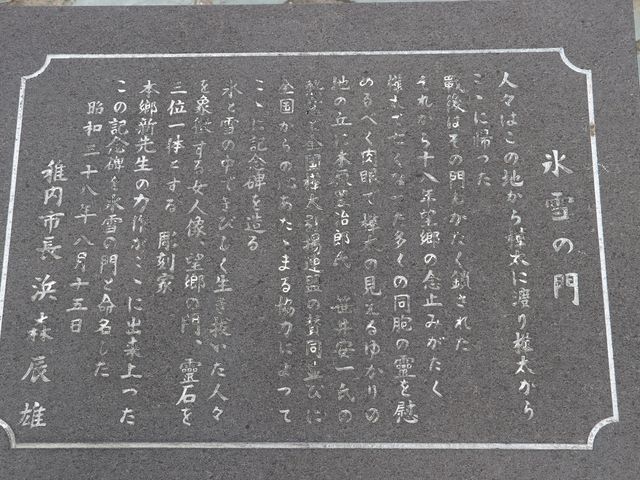 氷雪の門
人々はこの地から樺太に渡り樺太から
ここに帰った
戦後はその門もかたく鎖された
それから十八年望郷の念止みがたく
樺太で亡くなった多くの同胞の霊を慰
めるべく肉眼で樺太の見えるゆかりの
地の丘に木原豊治郎氏 笹井安一氏の
熱意と全国樺太引揚連盟の賛同並びに
全国からの心あたゝまる協力によつて
こゝに記念碑を造る
氷と雪の中できびしく生き抜いた人々
を象徴する女人像、望郷の門、霊石を
三位一体とする 彫刻家
本郷新先生の力作がこゝに出来上った
この記念碑を氷雪の門と命名した
昭和三十八年八月十五日
稚内市長 浜森辰雄